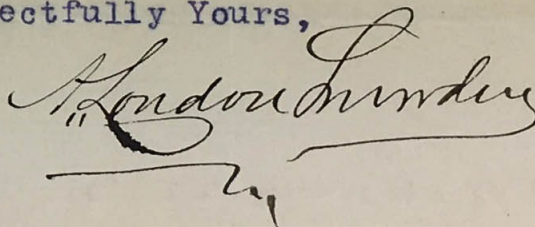 ectfully Yours,
A. Loudon Snowden